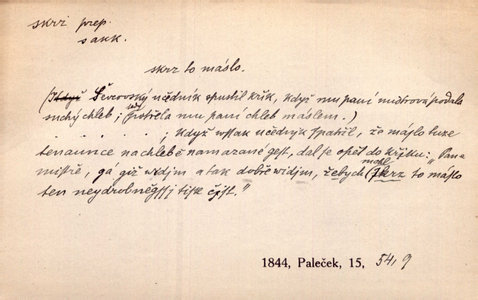 skrz prep.
s akk.
skrz to máslo.
(Když Ševcovský učedník spustil křik, když mu paní mistrová podala
suchý chleb; tedy spotřela mu paní chleb máslem.)
. . . . . , Když wssak učednjk spatřil, že máslo tuze
tenaunce na chlebě namazané gest, dal se opět do křiku: „Pane
mistře, gá giž widjm a tak dobře widjm, žebych mohl skrz to máslo
ten neydrobněgssj tisk čjst."
1844, Paleček, 15, 54, 9